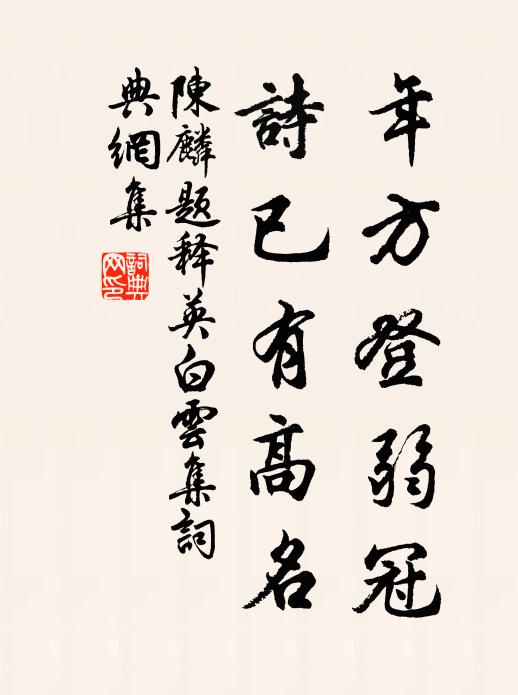 年方登弱冠
詩已有高名
陳麟題释英白雲集詞
典網集
詞典网印